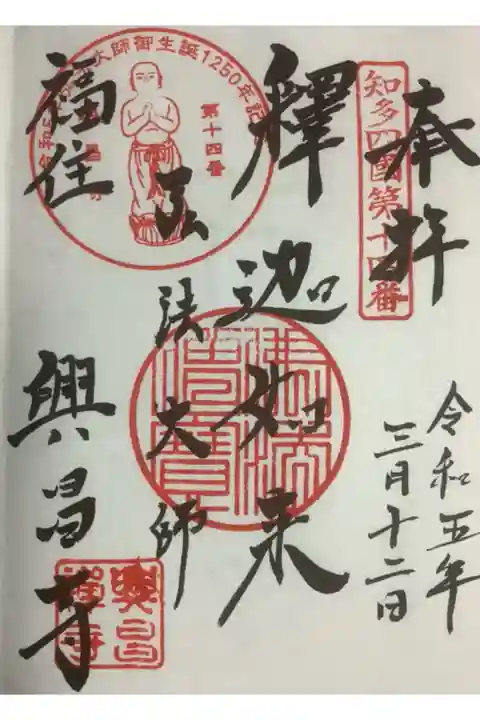 奉拝
知多四國第十四番
令和五年
三月十二日
釋迦如来
弘法大師
福住
興昌寺
大師御生誕1250年記
第十四番
佛法僧寶
興昌禅寺